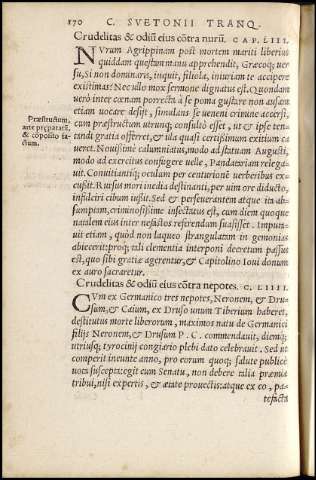 170 C. SVETONII TRANQ.
Crudelitas & odiũ eius cõtra nurũ. CAP. LIII.
NVrum Agrippinam post mortem mariti liberius
quiddam questam manu apprehendit, Græcoq; uer
su, Si non dominaris, inquit, filiola, iniuriam te accipere
existimas? Nec ullo mox sermone dignatus est. Quondam
uerò inter cœnam porrecta à se poma gustare non ausam
etiam uocare desijt, simulans se ueneni crimine accersi,
cum præstructum utrunq; consultò esset, ut & ipse ten-
tandi gratia offerret, & illa quasi certissimum exitium ca
ueret. Nouissimè calumniatus, modo ad statuam Augusti,
modo ad exercitus confugere uelle, Pandateriam relega-
uit. Conuitiantiq; oculum per centurionē uerberibus ex-
cußit. Rursus mori inedia destinanti, per uim ore diducto,
infulciri cibum iußit. Sed & perseuerantem atque ita ab-
sumptam, criminosißimè insectatus est, cum diem quoque
natalem eius inter nefastos referendum suasisset. Imputa-
uit etiam, quod non laqueo strangulatam in gemonias
abiecerit: proq; tali clementia interponi decretum passus
est, quo sibi gratiæ agerentur, & Capitolino Ioui donum
ex auro sacraretur.
Præstructum,
arte præparatũ,
& cõposito fa-
ctum.
Crudelitas & odiũ eius cõtra nepotes. C. LIIII.
CVm ex Germanico tres nepotes, Neronem, & Dru-
sum, & Caium, ex Druso unum Tiberium haberet,
destitutus morte liberorum, maximos natu de Germanici
filijs Neronem, & Drusum P. C. commendauit, diemq;
utriusq; tyrocinij congiario plebi dato celebrauit. Sed ut
comperit ineunte anno, pro eorum quoq; salute publicè
uota suscepta: egit cum Senatu, non debere talia præmia
tribui, nisi expertis, & ætate prouectis: atque ex eo, pa-
tefacta